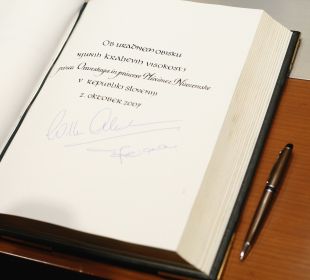 Ob uradnem obisku
njunih kraljevih visokosti
princa Oranskega in princese Máxime Nizozemske
v Republiki Sloveniji
2. oktober 2007